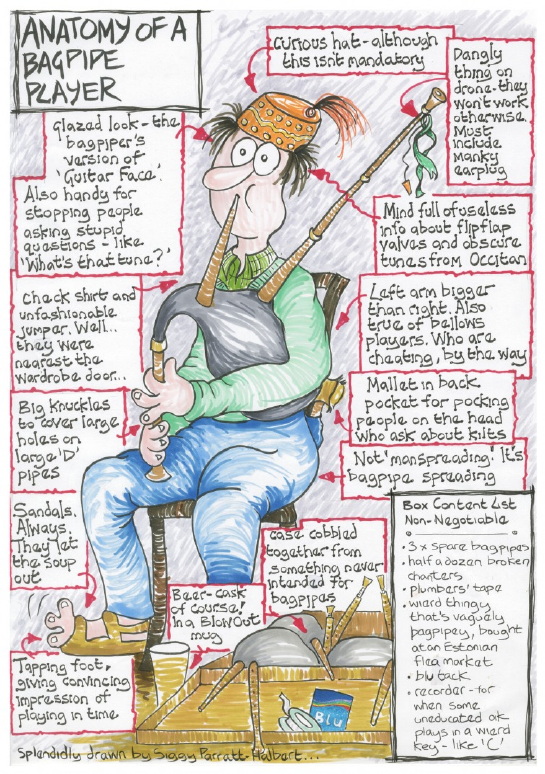 ANATOMY OF A
BAGPIPE
PLAYER
Curious hat - although
this isn't mandatory
Dangly
thing on
drone - they
won't work
otherwise.
Must
include
manky
earplug
Glazed look - the
bagpiper's
version of
'Guitar Face'.
Also handy for
stopping people
asking stupid
questions - like
'What's that tune?'
Mind full of useless
info about flipflap
valves and obscure
tunes from Occitan
Check shirt and
unfashionable
jumper. Well...
they were
nearest the
wardrobe door...
Left arm bigger
than right. Also
true of bellows
players. Who are
cheating, by the way
Mallet in back
pocket for pocking
people on the head
who ask about kilts
Big knuckles
to cover large
holes on
large 'D'
pipes
Not 'manspreading'! It's
bagpipe spreading
Sandals.
Always.
They let
the soup
out
case cobbled
together from
something never
intended for
bagpipes
Beer-cask
of course!
In a Blowout
mug
Tapping foot,
giving convincing
impression of
playing in time
Box Content List
Non-Negotiable
• 3 x spare bagpipes
• half a dozen broken
chanters
• plumbers' tape
• wierd thingy
that's vaguely
bagpipey, bought
at an Estonian
flea market
• blu tack
• recorder - for
when some
uneducated oik
plays in a wierd
key - like 'C'
BLU
Splendidly drawn by Siggy Parratt-Halbert...